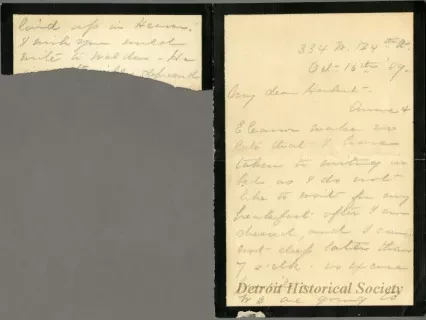 laid up in Heaven.
I wish you would
write to Walden - He
334 W. 124th St.
Oct - 16th '09.
My dear Herbert -
Anna &
Eleanor wake so
late that I have
taken to writing in
bed as I do not
like to wait for my
breakfast after I am
dressed, and I can
not sleep later than
7 o'clk - so
We are going to
Detroit Historical Society